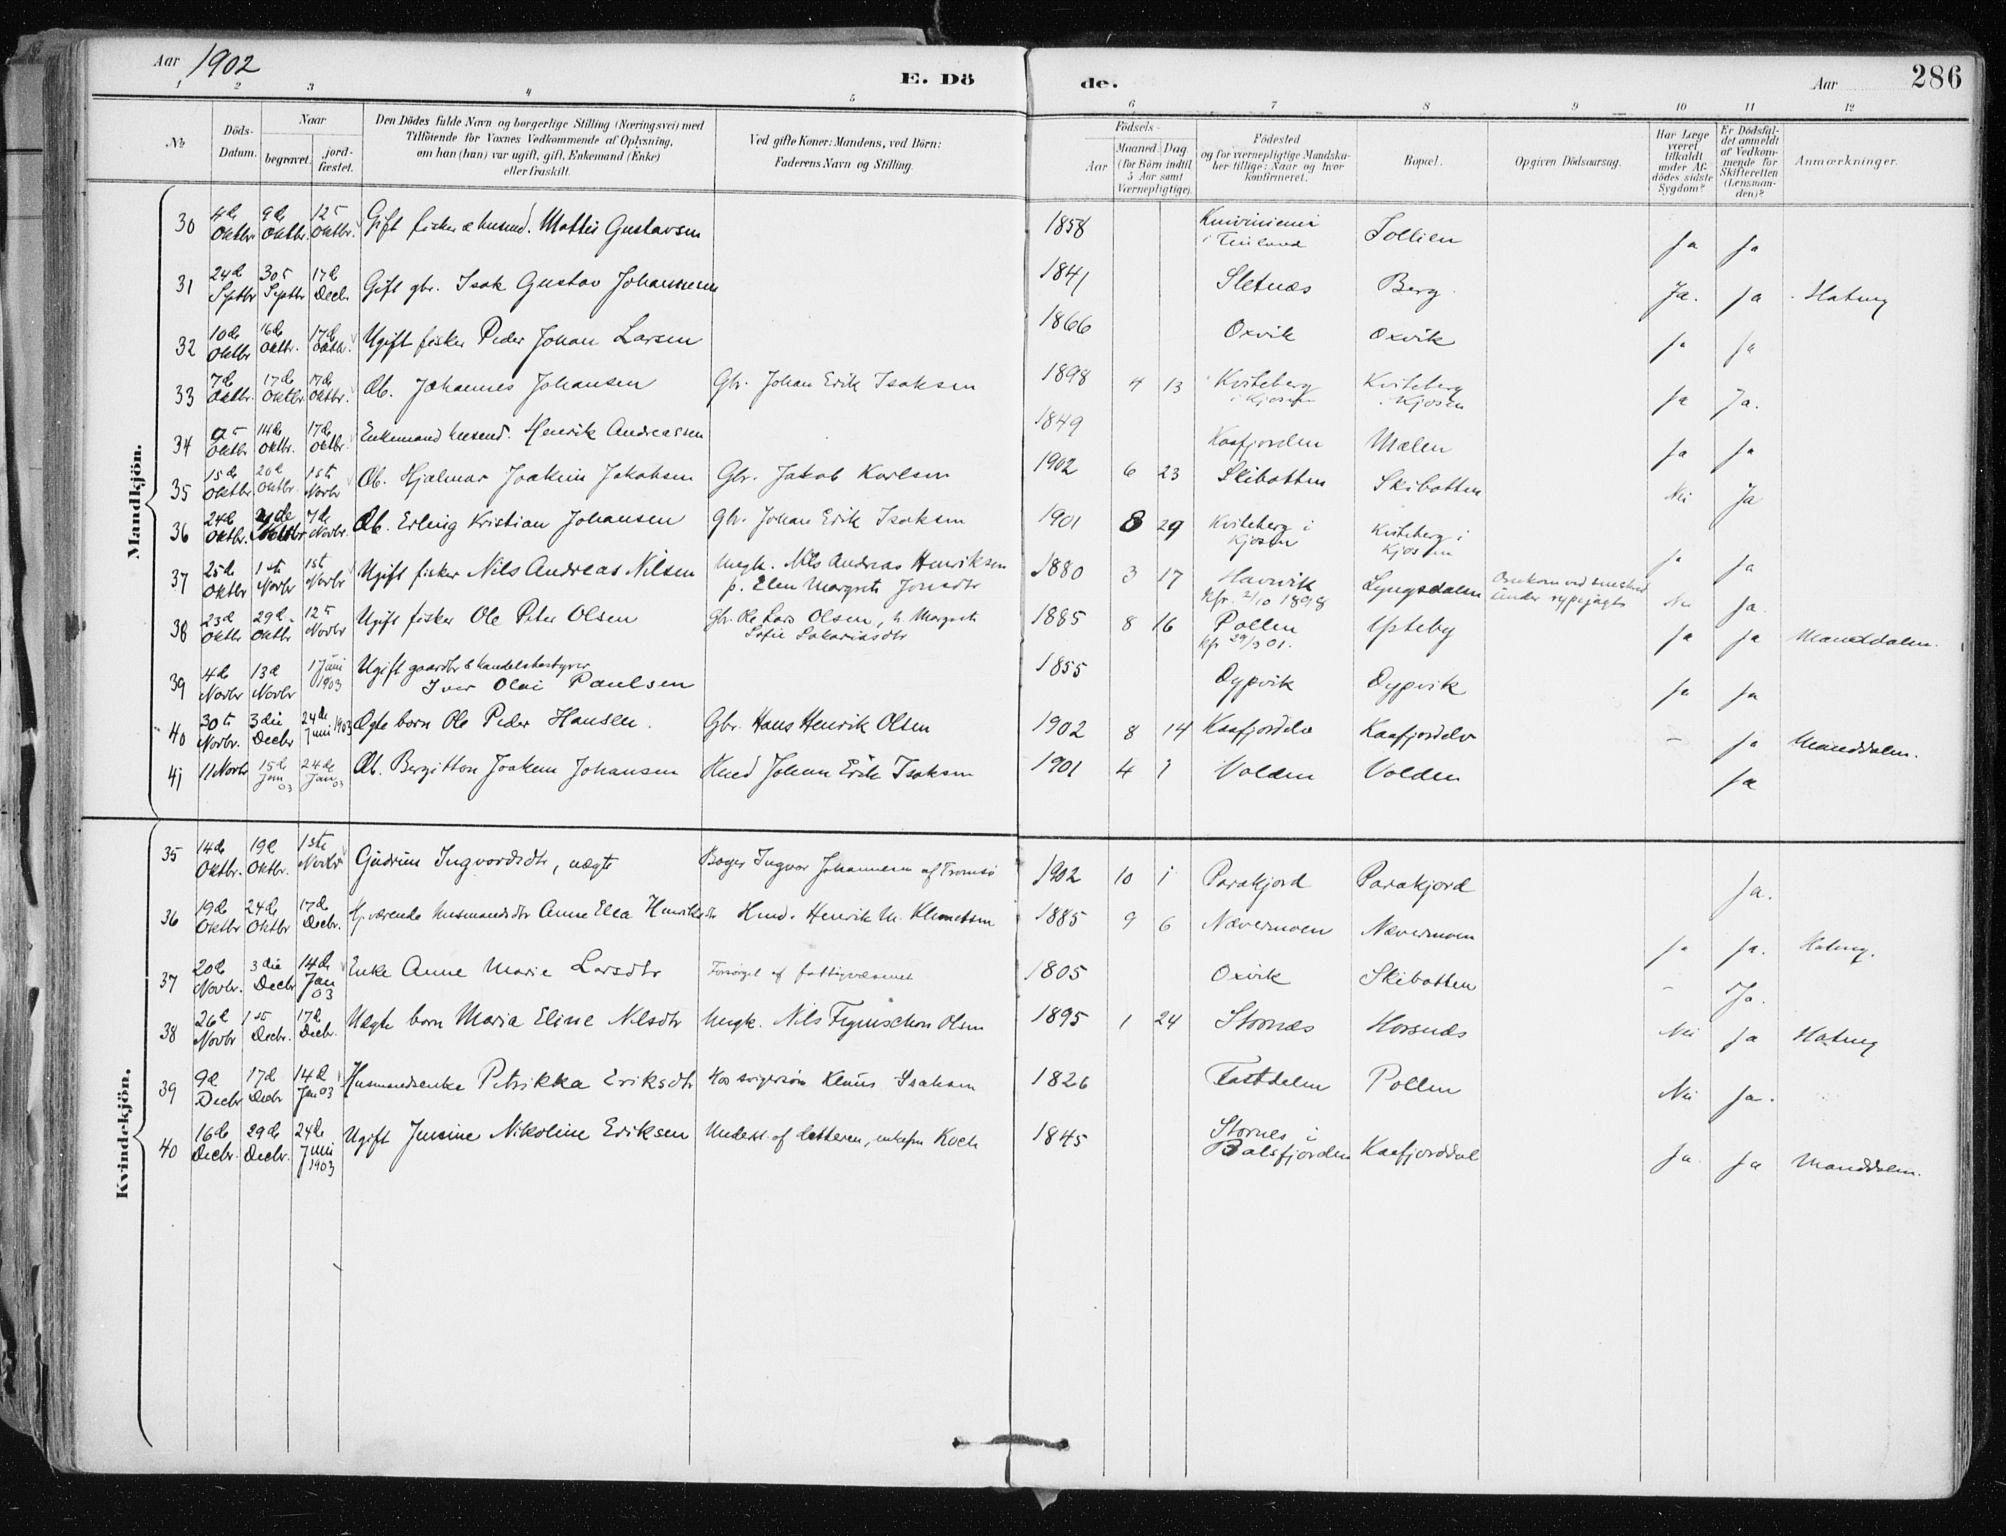 Aar 1902 E. Dö de. Aar 286
1 2 3 4 5 6 7 8 9 10 11 12
No Döds-Datum. Naar begravet. jordfæstet. Den Dödes fulde Navn og borgerlige Stilling (Næringsvei) med Tilföiende for Voxnes Vedkommende af Oplysning, om han (hun) var ugift, gift, Enkemand (Enke) eller fraskilt. Ved gifte Koner: Mandens, ved Börn: Faderens Navn og Stilling. Födsels- Aar Maaned. Dag (for Börn indtil 5 Aar samt Værnepligtige). Födested og for værnepligtige Mandskaber tillige: Naar og hvor konfirmeret. Bopæl. Opgiven Dödsaarsag. Har Læge været tilkaldt under Afdödes sidste Sygdom? Er Dödsfaldet anmeldt af Vedkommende for Skifteretten (Lensmanden)? Anmærkninger.
Mandkjön.
30 4de Oktbr. 9de Oktbr. 12te Oktbr. Gift fisker & husmd. Mattis Gustavsen 1858 i Finland Sollien ja ja
31 24de Septbr 30te Septbr 17de Decbr. Gift gbr. Isak Gustav Johannesen 1841 Sletnæs Berg Ja. ja Hatteng
32 10de Oktbr 16de Oktbr. 17de Oktbr. Ugift fisker Peder Johan Larsen 1866 Oxvik Oxvik ja ja
33 7de Oktbr. 17de Oktbr. 17de Oktbr. Æb. Johannes Johansen Gbr. Johan Erik Isaksen 1898 4 13 Kviteberg i Kjosen Kviteberg i Kjosen ja Ja.
34 Oktbr 14de Oktbr. 17de Oktbr. Enkemand husmd. Henrik Andreassen 1849 Kaafjorden Mælen ja ja
35 15de Oktbr 20de Oktbr. 1ste Novbr Æb. Hjalmar Joakim Jakobsen Gbr. Jakob Karlsen 1902 6 23 Skibotten Skibotten Nei Ja
36 24de Oktbr. Oktbr 7de Novbr. Æb. Erling Kristian Johansen Gbr. Johan Erik Isaksen 1901 8 29 Kviteberg i Kjosen Kviteberg i Kjosen ja ja
37 25de Oktbr 1ste Novbr 1ste Novbr Ugift fisker Nils Andreas Nilsen Ungk. Nils Andreas Henriksen p. Elen Margrete Jonsdtr 1880 3 17 Havnvik kfr. 2/10 1898 Lyngsdalen Omkom ved under rypejagt Nei ja.
38 23de Oktbr 29de Oktbr 12te Novbr Ugift fisker Ole Peter Olsen Gbr. Ole Lars Olsen, h. Margrete Sofie Sakariasdtr 1885 8 16 Pollen kfr 29/9 01. Ysteby ja ja Manddalen.
39 4de Novbr 13de Novbr 1 Juni 1903 Ugift gaardbr & handelsbestyrer Iver Olai Paulsen 1855 Dypvik Dypvik ja ja
40 30te Novbr. 3die Decbr 24de Juni 1903 Ægte barn Ole Peder Hansen. Gbr. Hans Henrik Olsen 1902 8 14 Kaafjordelv Kaafjordelv – ja Manddalen.
41 11 Novbr 15de Jan 03 24de Jan 03 Æb. Bergitton Joakim Johansen Hmd Johan Erik Isaksen 1901 4 Volden Volden ja
Kvindekjön.
35 14de Oktbr. 19de Oktbr. 1ste Novbr Gudrun Ingvardsdtr, uægte Bager Ingvar Johannesen af Tromsö 1902 10 1 Parakjord Parakjord ja.
36 19de Oktbr 24de Oktbr 17de Decbr. Hj.værende husmandsdtr Anne Elea Henriksdtr Hmd. Henrik M. Klemetsen 1885 9 6 Nævermoen Nævermoen ja ja. Hatteng.
37 20de Novbr. 3die Decbr 14de Jan 03 Enke Anne Marie Larsdtr Forsörget af fattigvæsenet 1805 Oxvik Skibotten – Ja.
38 26de Novbr 1ste Decbr. 17de Decbr. Uægte barn Maria Eline Nilsdtr Ungk. Nils Olsen 1895 1 24 Stornæs Horsnæs Nei ja Hatteng
39 9de Decbr 17de Decbr 14de Jan 03 Husmandsenke Petrikka Eriksdtr Hos svigersön Klaus Isaksen 1826 Fastdalen Pollen Nei ja.
40 16de Decbr. 29de Decbr. 24de Juni 1903 Ugift Jensine Nikoline Eriksen Underst. af datteren, enkefru Koch 1845 Stornes i Balsfjorden Kaafjorddal ja. ja Manddalen.